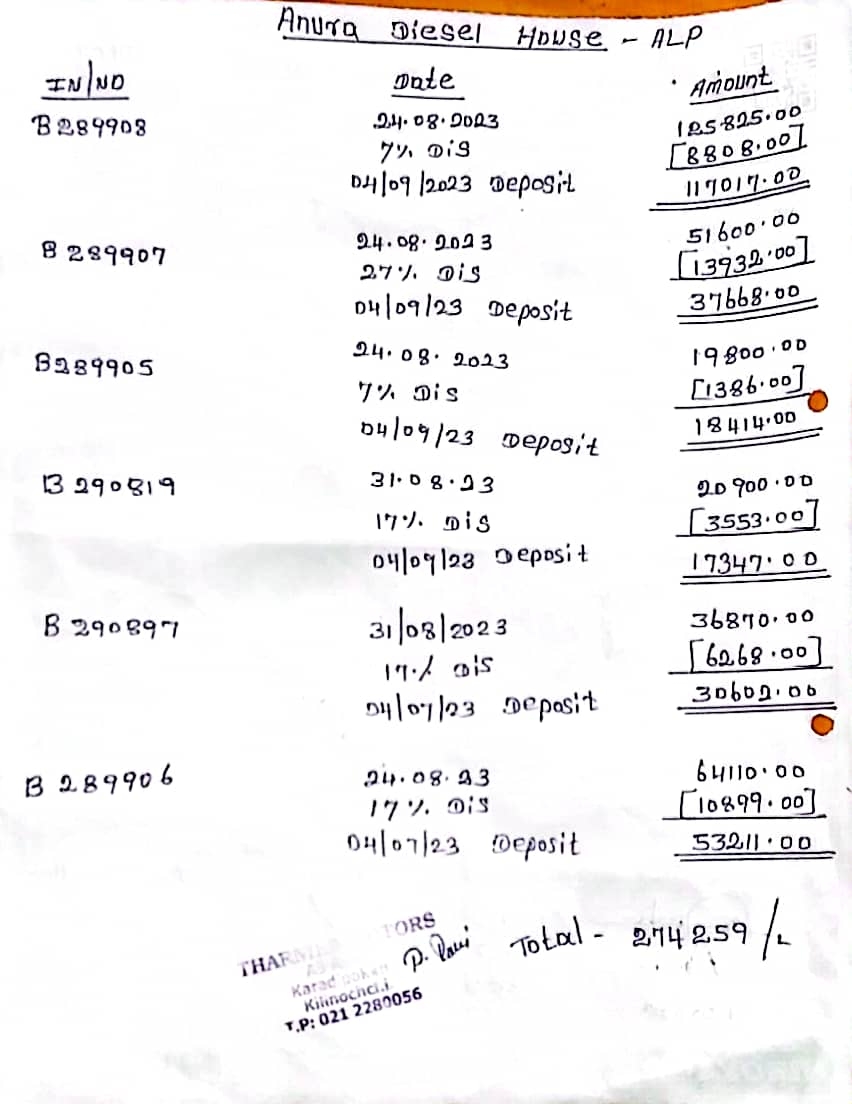 Anura Diesel House - ALP
IN/NO Date Amount
B289908 24.08.2023 125825.00
7% Dis [8808.00]
04/09/2023 Deposit 117017.00
B 289907 24.08.2023 51600.00
27% Dis [13932.00]
04/09/23 Deposit 37668.00
B289905 24.08.2023 19800.00
7% Dis [1386.00]
04/09/23 Deposit 18414.00
B 290819 31.08.23 20900.00
17% Dis [3553.00]
04/09/23 Deposit 17347.00
B 290897 31/08/2023 36870.00
17% Dis [6268.00]
04/07/23 Deposit 30602.00
B 289906 24.08.23 64110.00
17% Dis [10899.00]
04/07/23 Deposit 53211.00
Total - 274259/-
Kilinochci.
T.P: 021 2280056